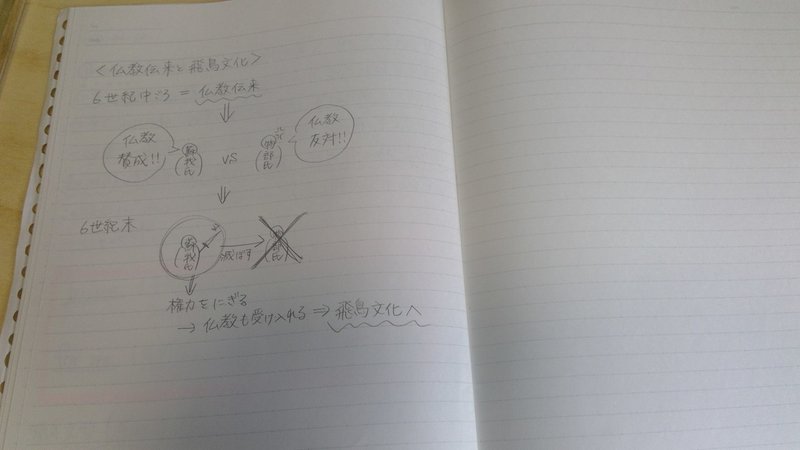 <仏教伝来と飛鳥文化>
6世紀中ごろ = 仏教伝来
⇓
仏教
賛成!!
蘇我氏
VS
物部氏
仏教
反対!!
⇓
6世紀末
蘇我氏
→
滅ぼす
↓
権力をにぎる
→ 仏教も受け入れる ⇒ 飛鳥文化へ